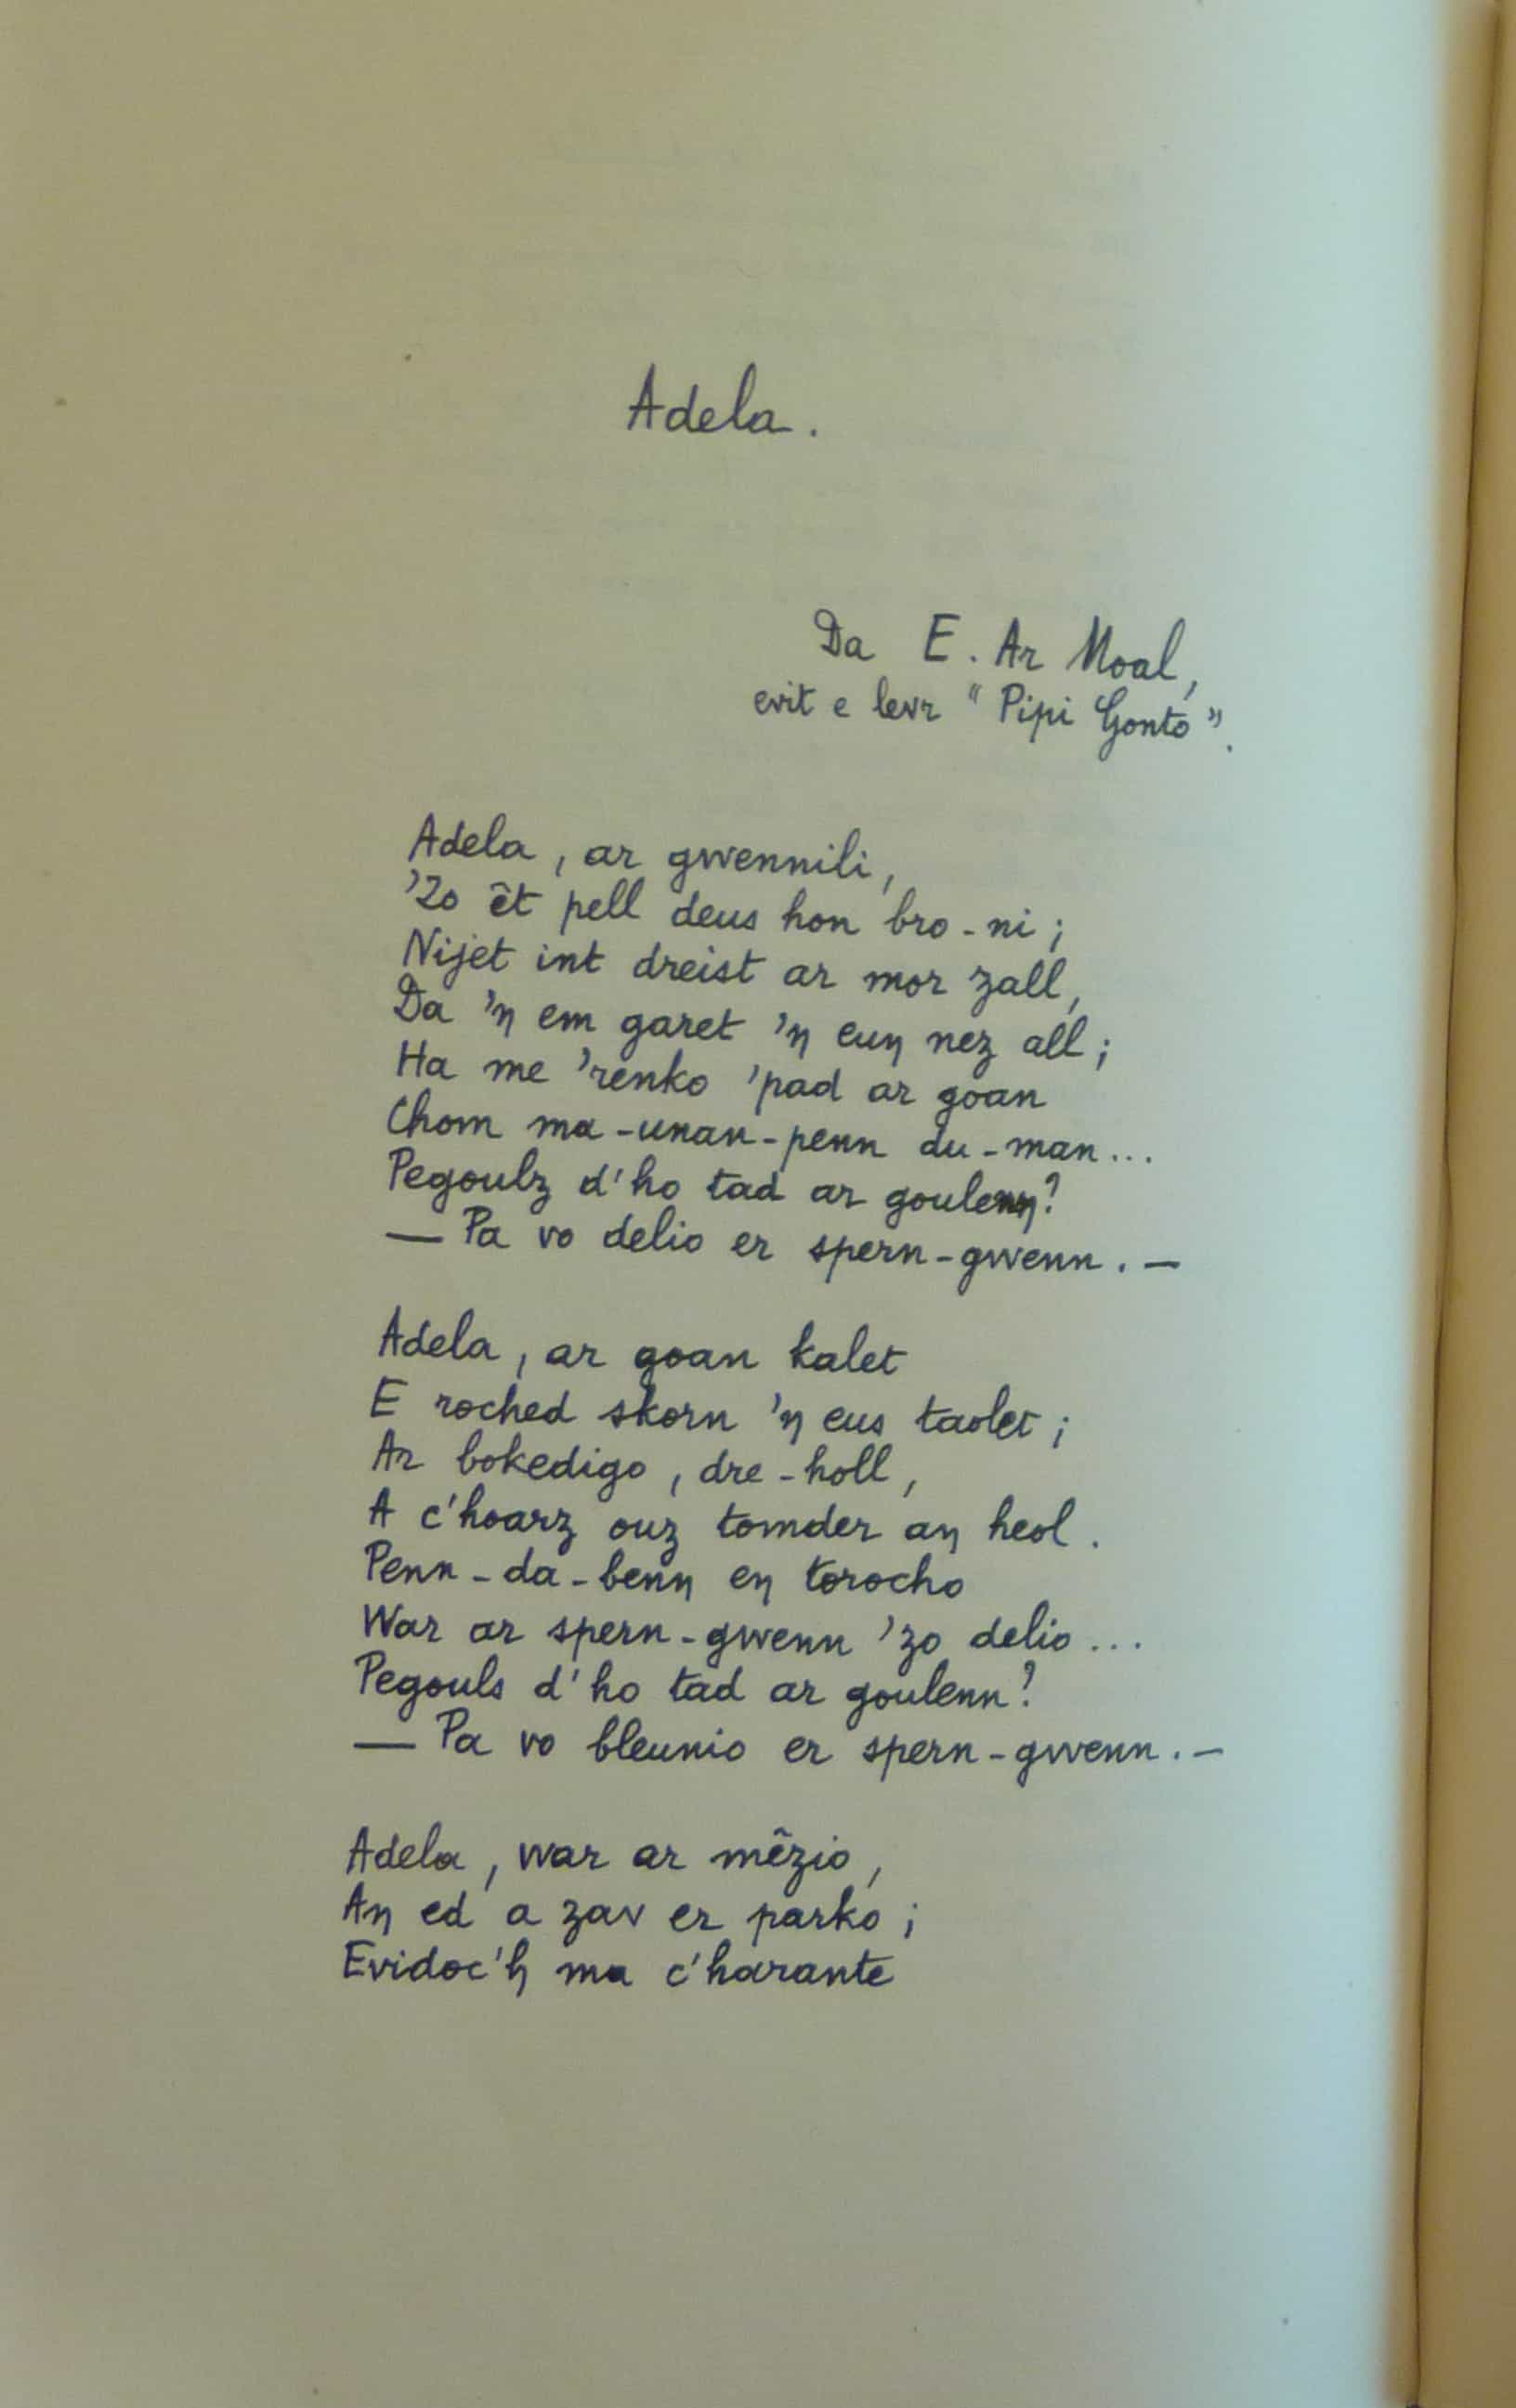 Adela.
Da E. Ar Moal,
evit e levr " Pipi Gonto ".
Adela, ar gwennili,
'Zo êt pell deus hon bro-ni;
Nijet int dreist ar mor zall,
Da 'ŋ em garet 'ŋ euŋ nez all;
Ha me 'renko 'pad ar goan
Chom ma-unan-penn du-man...
Pegoulz d'ho tad ar goulenŋ?
— Pa vo delio er spern-gwenn. —
Adela, ar goan kalet
E roched skorn 'ŋ eus taolet;
Ar bokedigo, dre-holl,
A c'hoarz ouz tomder aŋ heol.
Penn-da-benŋ eŋ torocho
War ar spern-gwenn 'zo delio...
Pegouls d'ho tad ar goulenn?
— Pa vo bleunio er spern-gwenn. —
Adela, war ar mêzio,
Aŋ ed a zav er parko;
Evidoc'h ma c'harante